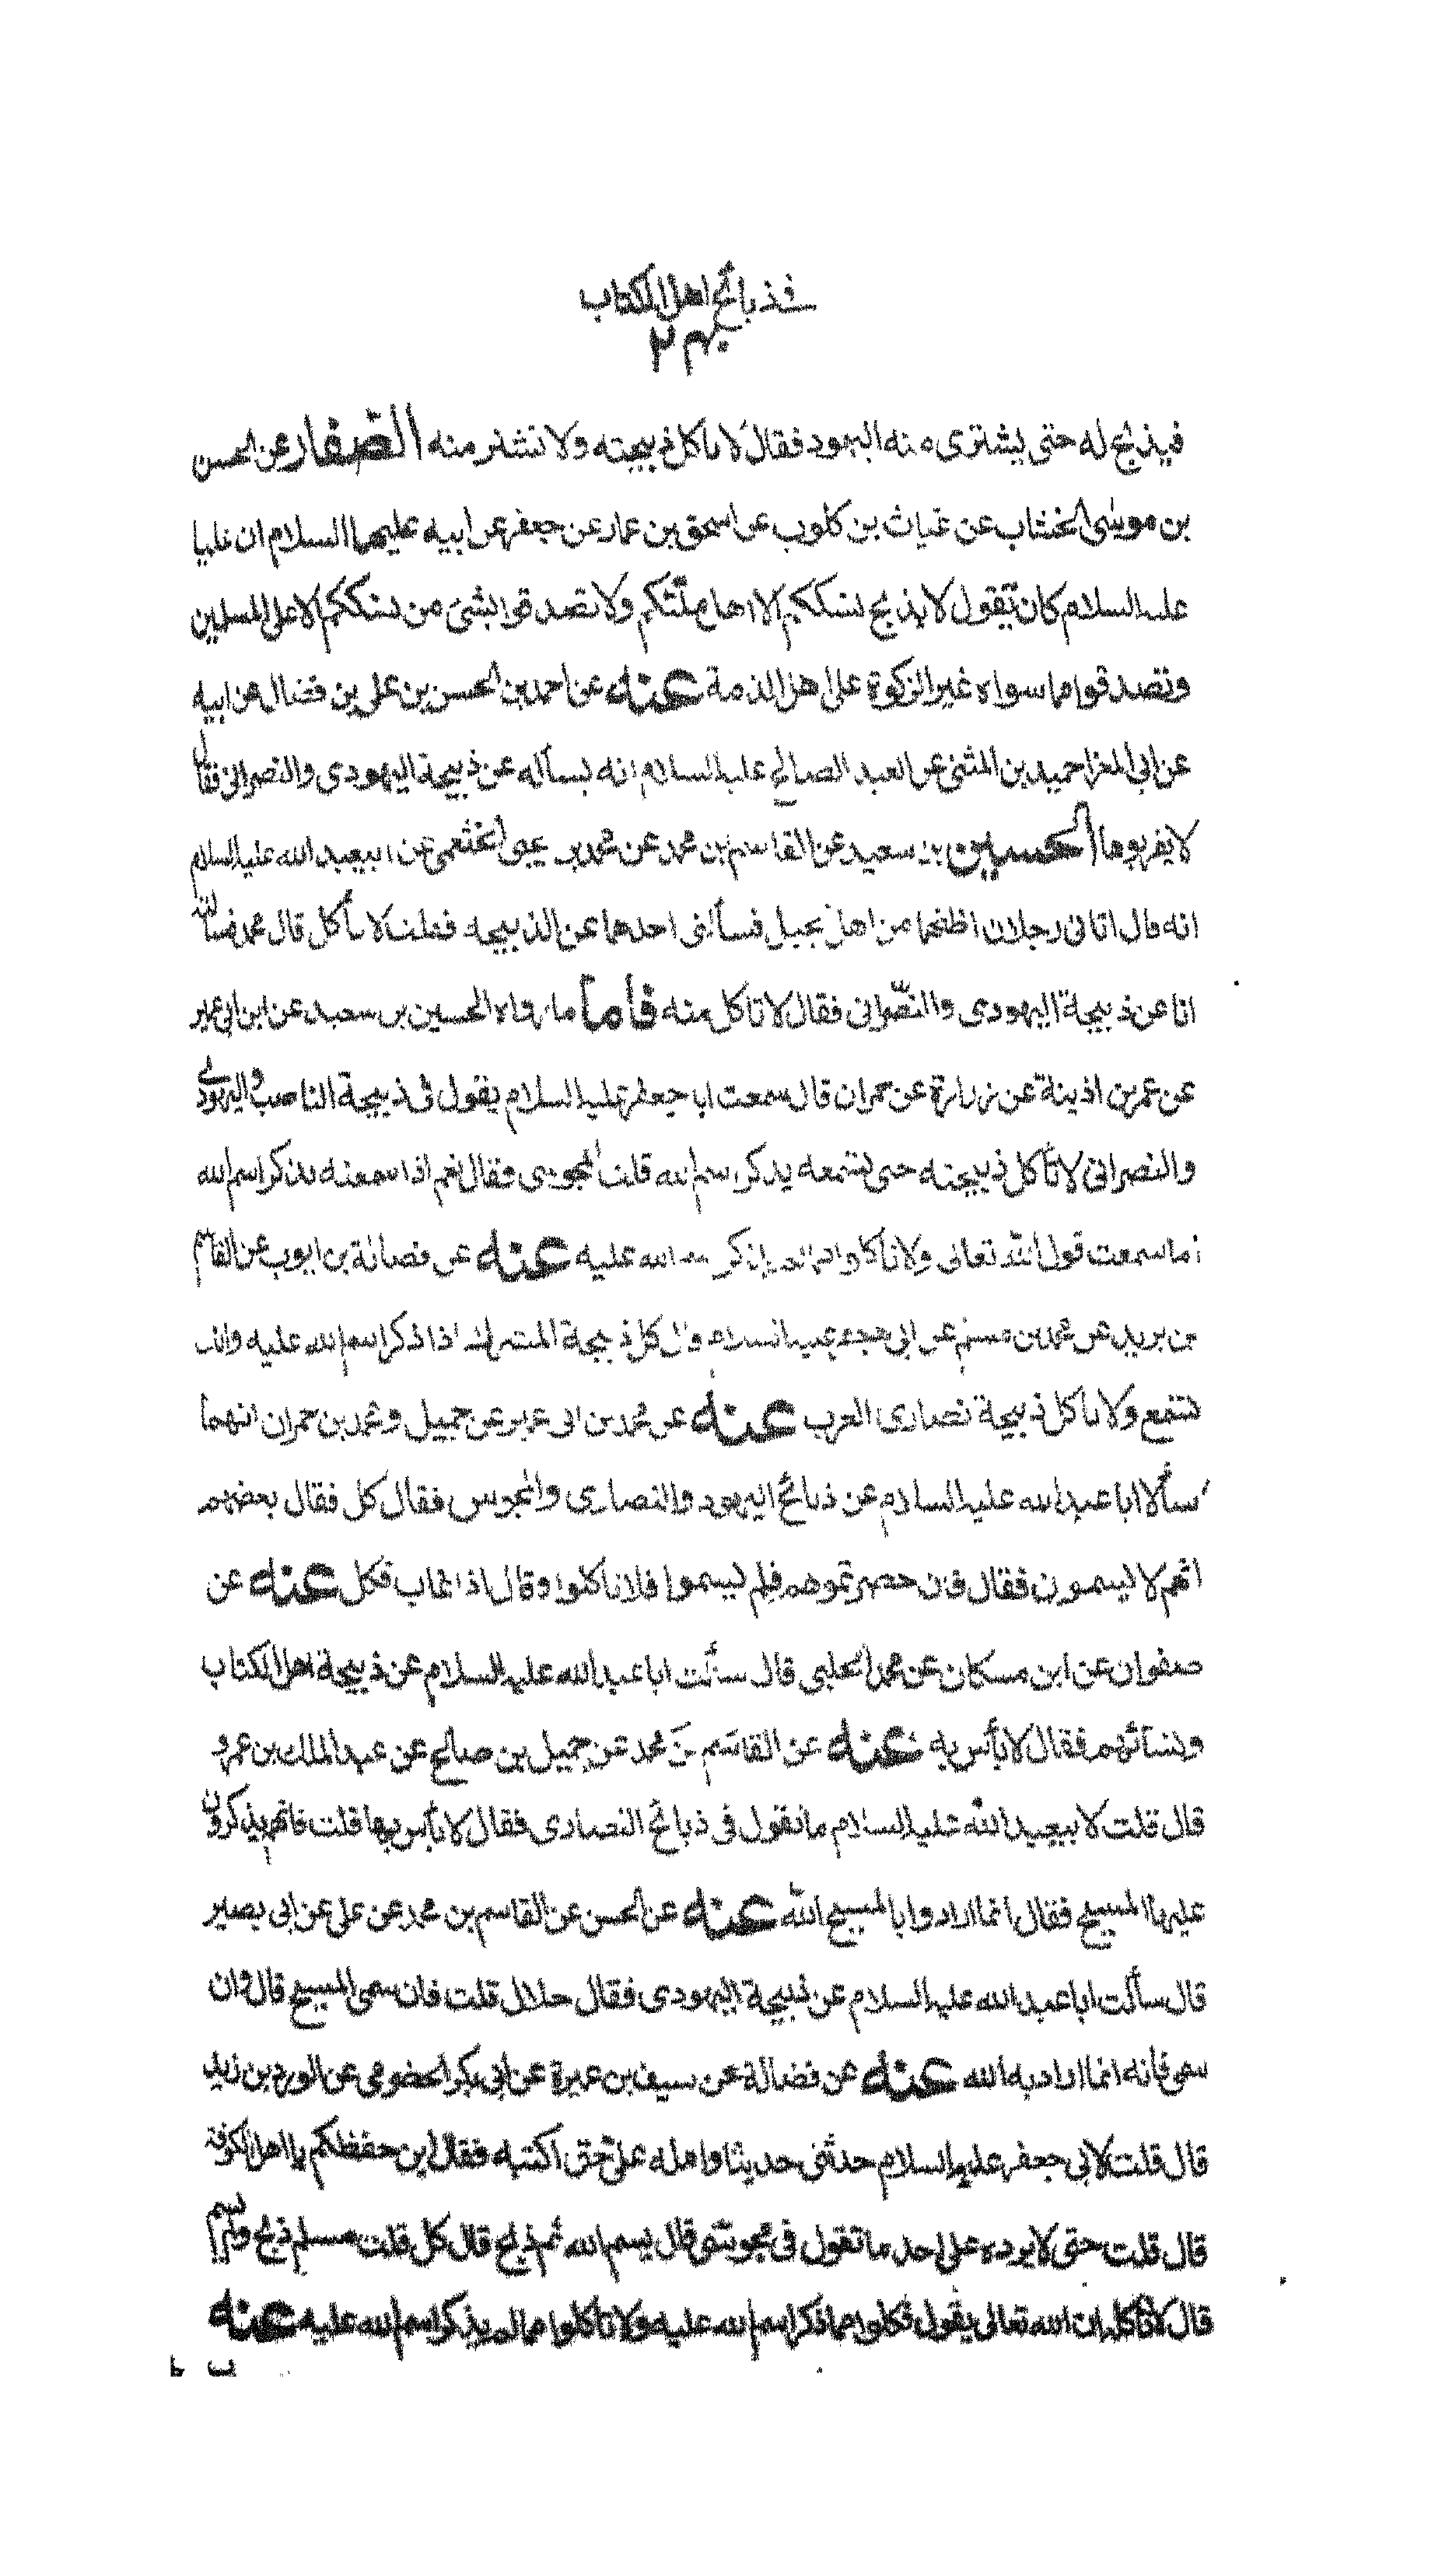 في ذبائح اهل الكتاب
فيذبح له حتى يشترى منه اليهود فقال لا تاكل ذبيحته ولا تشتر منه الصّفار عن الحسن
بن موسى الخشاب عن غياث بن كلوب عن اسحق بن عمار عن جعفر عن ابيه عليهما السلام ان عليا
عليه السلام كان يقول لا يذبح نسككم الا اهل ملتكم ولا تصدقوا بشئ من نسككم الا على المسلمين
وتصدقوا مما سواه غير الزكوة على اهل الذمة عنه عن احمد بن الحسن بن على بن فضال عن ابيه
عن ابى المغرا حميد بن المثنى عن العبد الصالح عليه السلام انه سأله عن ذبيحة اليهودى والنصرانى فقال
لا يقربوها الحسين بن سعيد عن القاسم بن محمد عن محمد بن يحيى الخثعمى عن ابيعبد الله عليه السلام
انه قال اتانى رجلان اظنهما من اهل الجبل فسألنى احدهما عن الذبيحه فقلت لا تأكل قال محمد فسألته
انا عن ذبيحة اليهودى والنصّرانى فقال لا تاكل منه فأما ما رواه الحسين بن سعيد عن ابن ابى عمير
عن عمر بن اذينة عن زرارة عن حمران قال سمعت ابا جعفر عليه السلام يقول فى ذبيحة الناصب واليهودى
والنصرانى لا تأكل ذبيحته حتى تسمعه يذكر اسم الله قلت المجوسى فقال نعم اذا سمعته يذكر اسم الله
اما سمعت قول الله تعالى ولا تاكلوا مما لم يذكر اسم الله عليه عنه عن فضالة بن ايوب عن القاسم
بن بريد عن محمد بن مسلم عن ابى جعفر عليه السلام قال كل ذبيحة المشرك اذا ذكر اسم الله عليه وانت
تسمع ولا تاكل ذبيحة نصارى العرب عنه عن محمد بن ابى عمير عن جميل ومحمد بن حمران انهما
سألا ابا عبد الله عليه السلام عن ذبائح اليهود والنصارى والمجوس فقال كل فقال بعضهم
انهم لا يسمون فقال فان حضرتموهم فلم يسموا فلا تاكلوا وقال اذا غاب فكل عنه عن
صفوان عن ابن مسكان عن محمد الحلبى قال سألت ابا عبد الله عليه السلام عن ذبيحة اهل الكتاب
ونسائهم فقال لا بأس به عنه عن القاسم بن محمد عن جميل بن صالح عن عبد الملك بن عمرو
قال قلت لابيعبد الله عليه السلام ما تقول فى ذبائح النصارى فقال لا بأس بها قلت فانهم يذكرون
عليها المسيح فقال انما ارادوا بالمسيح الله عنه عن الحسن عن القاسم بن محمد عن على عن ابى بصير
قال سألت ابا عبد الله عليه السلام عن ذبيحة اليهودى فقال حلال قلت فان سمى المسيح قال وان
سمى فأنه انما اراد به الله عنه عن فضالة عن سيف بن عميرة عن ابى بكر الحضرمى عن الورد بن زيد
قال قلت لابى جعفر عليه السلام حدثنى حديثا وامله على حتى اكتبه فقال اين حفظكم يا اهل الكوفة
قال قلت حتى لا يرده على احد ما تقول فى مجوسى قال بسم الله ثم ذبح قال كل قلت مسلم ذبح ولم يسم
قال لا تأكله ان الله تعالى يقول فكلوا مما ذكر اسم الله عليه ولا تاكلوا مما لم يذكر اسم الله عليه عنه